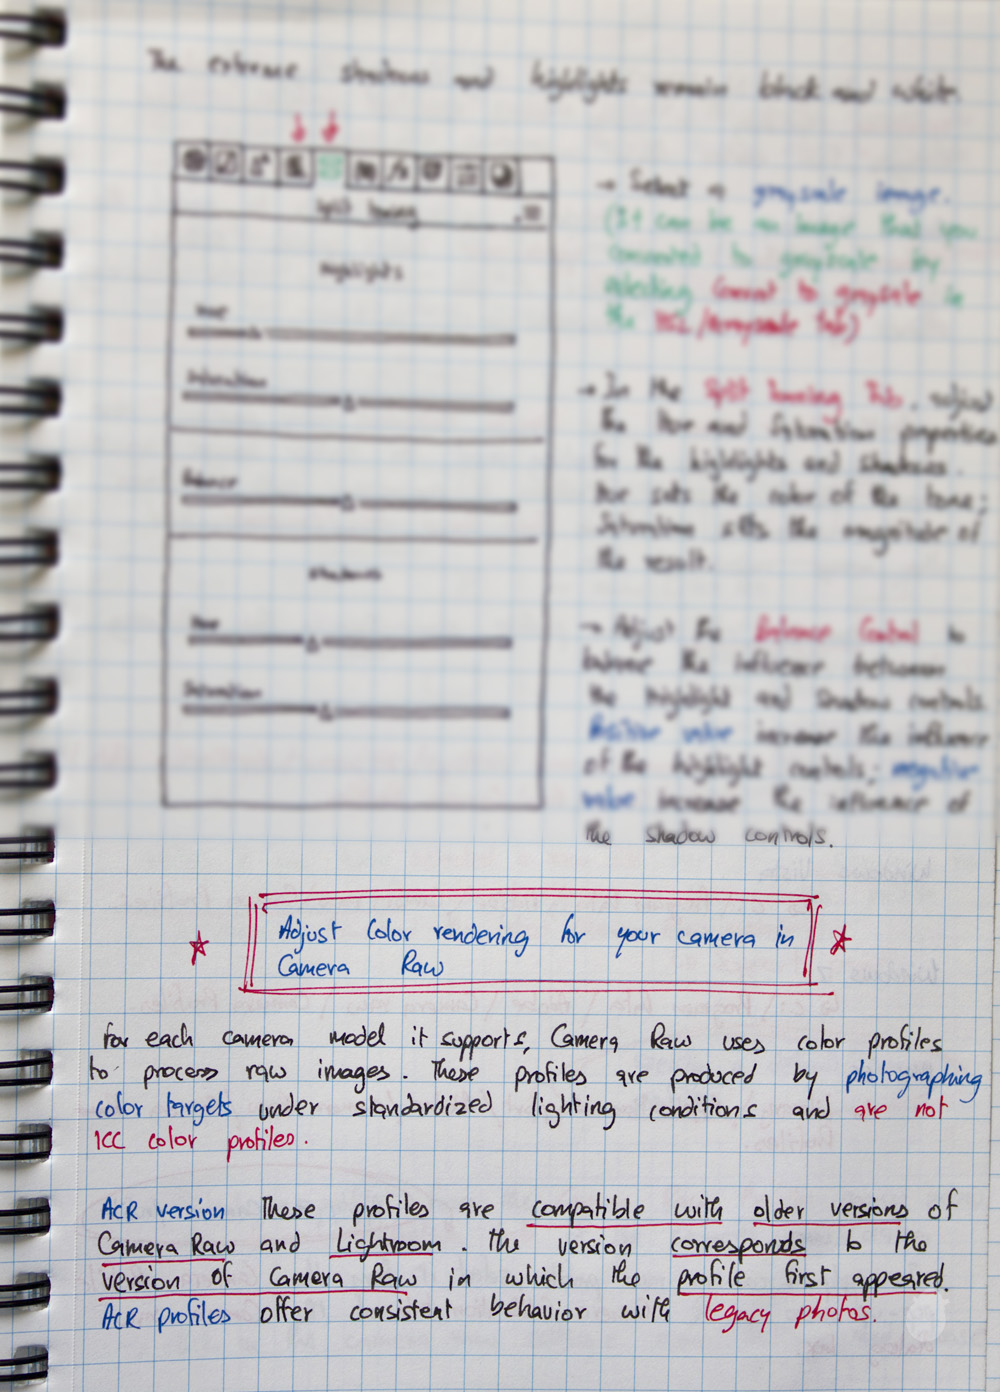 The extreme shadows and highlights remain black and white.
Split toning
Highlights
Hue
Saturation
Balance
Shadows
Hue
Saturation
→ Select a grayscale image.
(It can be an image that you
converted to grayscale by
selecting Convert to grayscale in
the HSL/Grayscale Tab)
→ In the Split Toning Tab, adjust
the Hue and Saturation properties
for the highlights and shadows.
Hue sets the color of the tone;
Saturation sets the magnitude of
the result.
→ Adjust the Balance Control to
balance the influence between
the highlight and shadow controls.
Positive value increase the influence
of the highlight controls; negative
value increase the influence of
the shadow controls.
Adjust Color rendering for your camera in
Camera Raw
For each camera model it supports, Camera Raw uses color profiles
to process raw images. These profiles are produced by photographing
color targets under standardized lighting conditions and are not
ICC color profiles.
ACR version These profiles are compatible with older versions of
Camera Raw and Lightroom. The version corresponds to the
version of Camera Raw in which the profile first appeared.
ACR profiles offer consistent behavior with legacy photos.